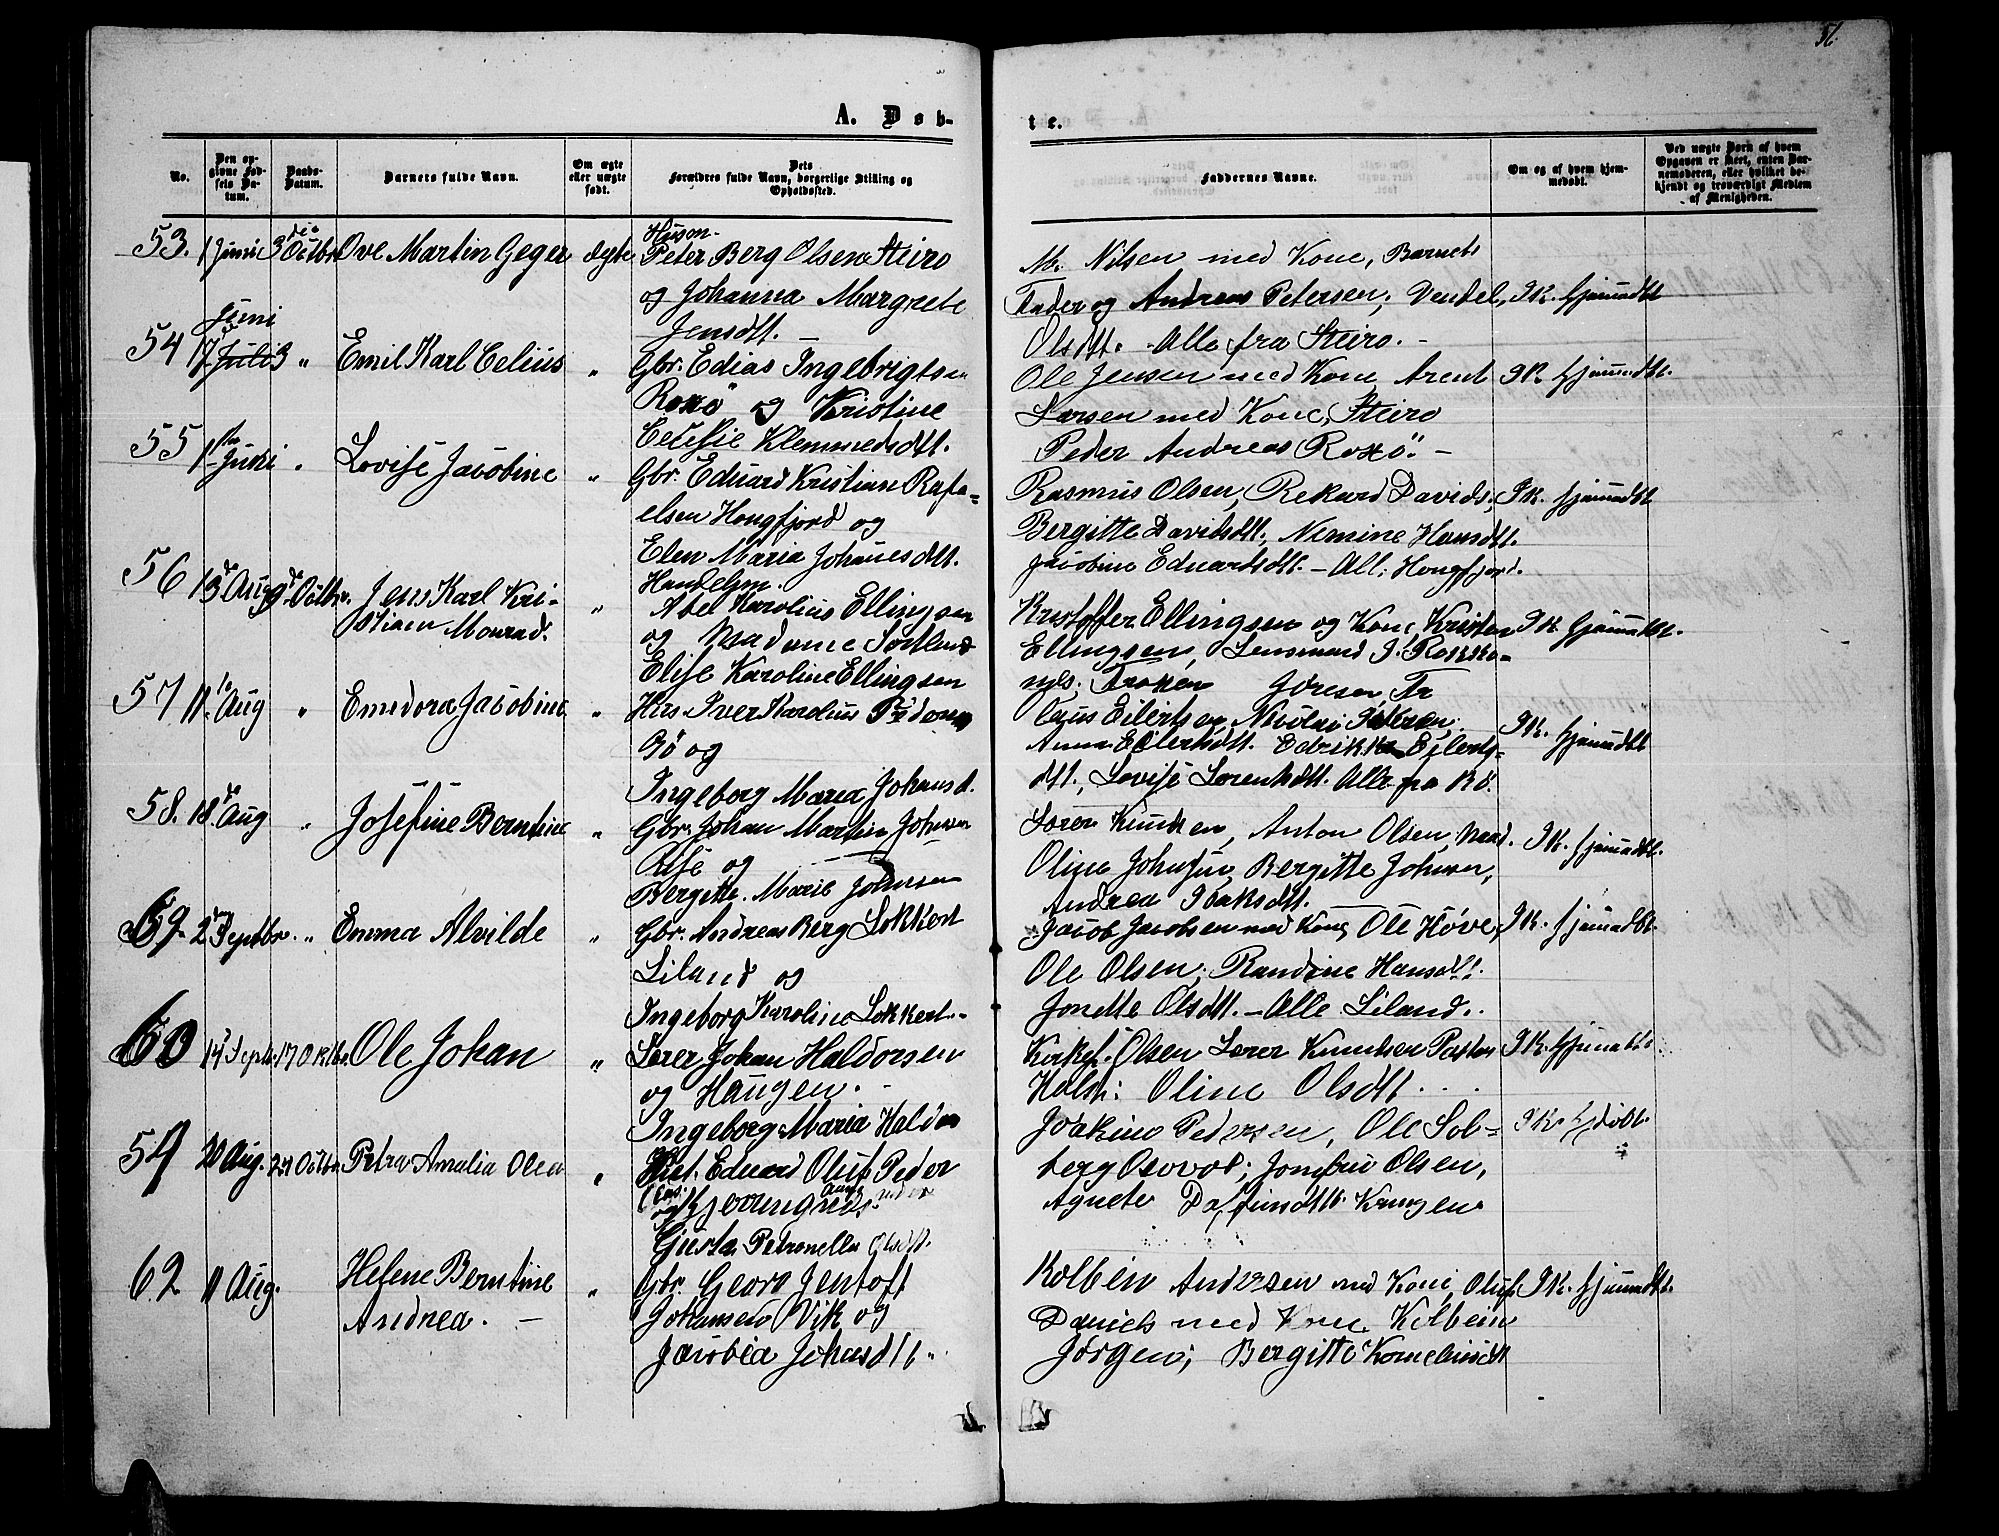 51.
A. Døb-
te.
No.
Den op-
givne Fød-
sels Da-
tum.
Daabs-
Datum.
Barnets fulde Navn.
Om ægte
eller uægte
født.
Dets
Forældres fulde Navn, borgerlige Stilling og
Opholdssted.
Faddernes Navne.
Om og af hvem hjem-
medøbt.
Ved uægte Børn af hvem
Opgaven er skeet, enten Bar-
nemoderen, eller hvilket be-
kjendt og troværdigt Medlem
af Menigheden.
53. 1 Juni 3die Octbr Ove Martin Geger ægte
Husm.
Peter Berg Olsen Steiro
og Johanna Margrete
Jensdt. —
M. Nilsen med Kone, Barnets
Fader og Andreas Petersen, Vendel
Olsdt. Alle fra Steiro. -
I K. hjemmdbt
54 17 Juni Juli 3 " Emil Karl Celius "
Gbr. Edias Ingebrigtsen
Roxø og Kristine
Celesie Klemmedsdt.
Ole Jensen med Kone Arent
Larsen med Kone, Steiro
Peder Andreas Roxø. -
I K hjemmdbt.
55 1ste Juni " Lovise Jacobine "
Gbr. Eduard Kristian Rafa-
elsen Hongfjord og
Elen Maria Johanesdt.
Rasmus Olsen, Rekard Davids,
Bergitte Davidsdt., Nimine Hansdt.
Jacobine Eduardsdt. - All: Hongfjord.
I K. hjemmdbt
56 13de Aug 9de Octbr. Jens Karl Kri-
stian Monrad. "
Handelsm.
Abel Karolius Ellingsen
og Madame Sortland
Elise Karoline Ellingsen
Kristoffer Ellingsen og Kone, Kristen
Ellingsen, Lensmand
Frøken
I K. hjemmdbt.
57 11te Aug " Emedora Jacobine "
Iver Karolius
Bø og
Ingeborg Maria Johansd.
Claus Eilertsen, Nicolai Petersen,
Anna Eilertsdt. Edrikke Eilerts-
dt., Lovise Lorentsdt. Alle fra Bø.
I K. hjemmdbt
58. 18de Aug " Josefine Berntine "
Gbr. Johan Martin Johnsen
Rise og
Bergitte Marie Johnsen
Soren Knudsen, Anton Olsen, Mad.
Oline Johnsen, Bergitte Johnsen,
Andrea Isaksdt.
I K. hjemmdbt.
59 2den Septbr. " Emma Alvilde "
Gbr. Andreas Berg Lokkert
Liland og
Ingeborg Karoline Lokkert.
Jacob Jacobsen med Kone, Ole Høve,
Ole Olsen, Randine Hansdt.
Jonette Olsdt. - Alle Liland.
I K. hjemmdbt.
60 14 Septbr. 17 Oktbr. Ole Johan "
Sører Johan Haldorsen
og Haugen.
Ingeborg Maria Haldor
Kirkes. Olsen Sører Knudsen Pastor
Holst: Oline Olsdt.
I K. hjemmdbt
59 20 Aug. 24 Octbr. Petra Amalia Olea "
Eduard Oluf Peder
og Kjerringnes.
Gjusta Petronella Olsdt.
Joakim Pedersen, Ole Sol-
berg Jomfru Olsen,
Agnete
I K. hjdbt.
62 11 Aug. Helene Berntine
Andrea. — "
Gbr. Georg Jentoft
Johansen Vik og
Jacobia Johansdtt.
Kolbein Andersen med Kone, Oluf
Daniels med Kone Kolbein
Jørgens; Bergitte Korneliusdt
I K. hjemmdbt.